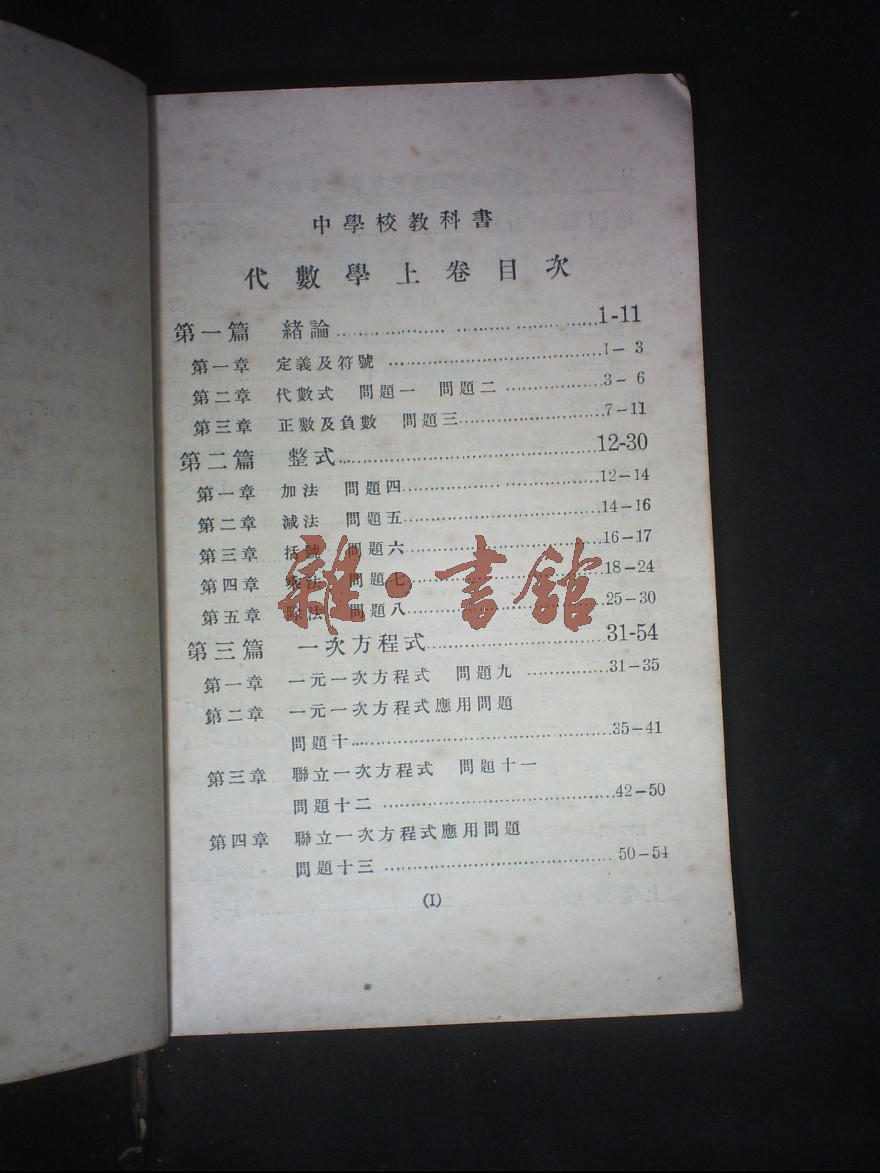 中學校教科書
代數學上卷目次
第一篇 緒論 1-11
第一章 定義及符號 1-3
第二章 代數式 問題一 問題二 3-6
第三章 正數及負數 問題三 7-11
第二篇 整式 12-30
第一章 加法 問題四 12-14
第二章 減法 問題五 14-16
第三章 括號 問題六 16-17
第四章 乘法 問題七 18-24
第五章 除法 問題八 25-30
雜·書館
第三篇 一次方程式 31-54
第一章 一元一次方程式 問題九 31-35
第二章 一元一次方程式應用問題
問題十 35-41
第三章 聯立一次方程式 問題十一
問題十二 42-50
第四章 聯立一次方程式應用問題
問題十三 50-54
(I)